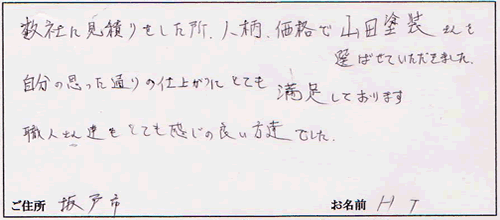 数社に見積りをした所、人柄、価格で山田塗装さんを
選ばせていただきました。
自分の思った通りの仕上がりにとても満足しております
職人さん達もとても感じの良い方達でした。
ご住所 坂戸市 お名前 H T